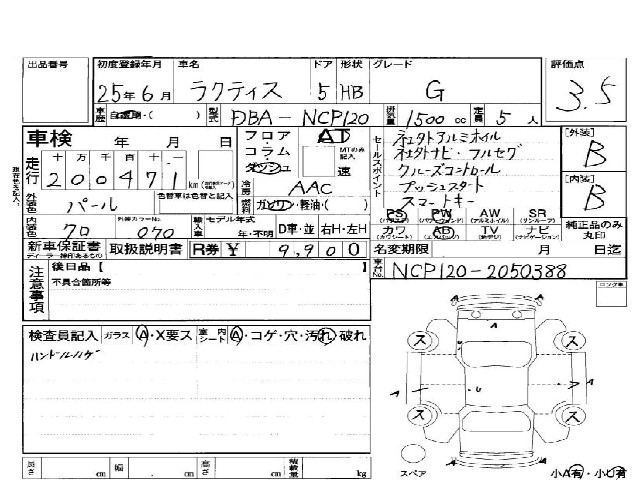 出品番号 初度登録年月 車名 ドア 形状 グレード 評価点
25年6月 ラクティス 5 HB G 3.5
車歴 自家用・( ) 型式 DBA-NCP120 排気量 1500cc 定員 5人
車検 年 月 日
フロア・コラム・ダッシュ AT MTのみ記入 速
セールスポイント
社外アルミホイル
社外ナビ・フルセグ
クルーズコントロール
プッシュスタート
スマートキー
[外装] B
[内装] B
走行 十 万 千 百 十 一
200471 km
冷房 AAC
外装色 パール 色替車は色替と記入
燃料 ガソリン・軽油・( )
PS (パワステ) PW (パワーウィンド) AW (アルミホイル) SR (サンルーフ)
カワ (カワシート) AB (エアバッグ) TV (純正テレビ) ナビ (ナビゲーション)
純正品のみ丸印
内装色 70 外装カラーNo. 070 輸入車 モデル年式 年・不明 D車・並 右H・左H
新車保証書 ディーラー捺印あるもの 取扱説明書 R券 ¥ 9,900 名変期限 月 日迄
車台No. NCP120-2050388
注意事項 後日品[ ]
不具合箇所等
検査員記入 ガラス A・X要ス 室内シート A・コゲ・穴・汚れ・破れ
ハンドルハゲ
A
U
A
ス ス
A A
U
ス ス
A
スペア
小A有・小U有
長さ cm 幅 cm 高さ cm 積載量 kg